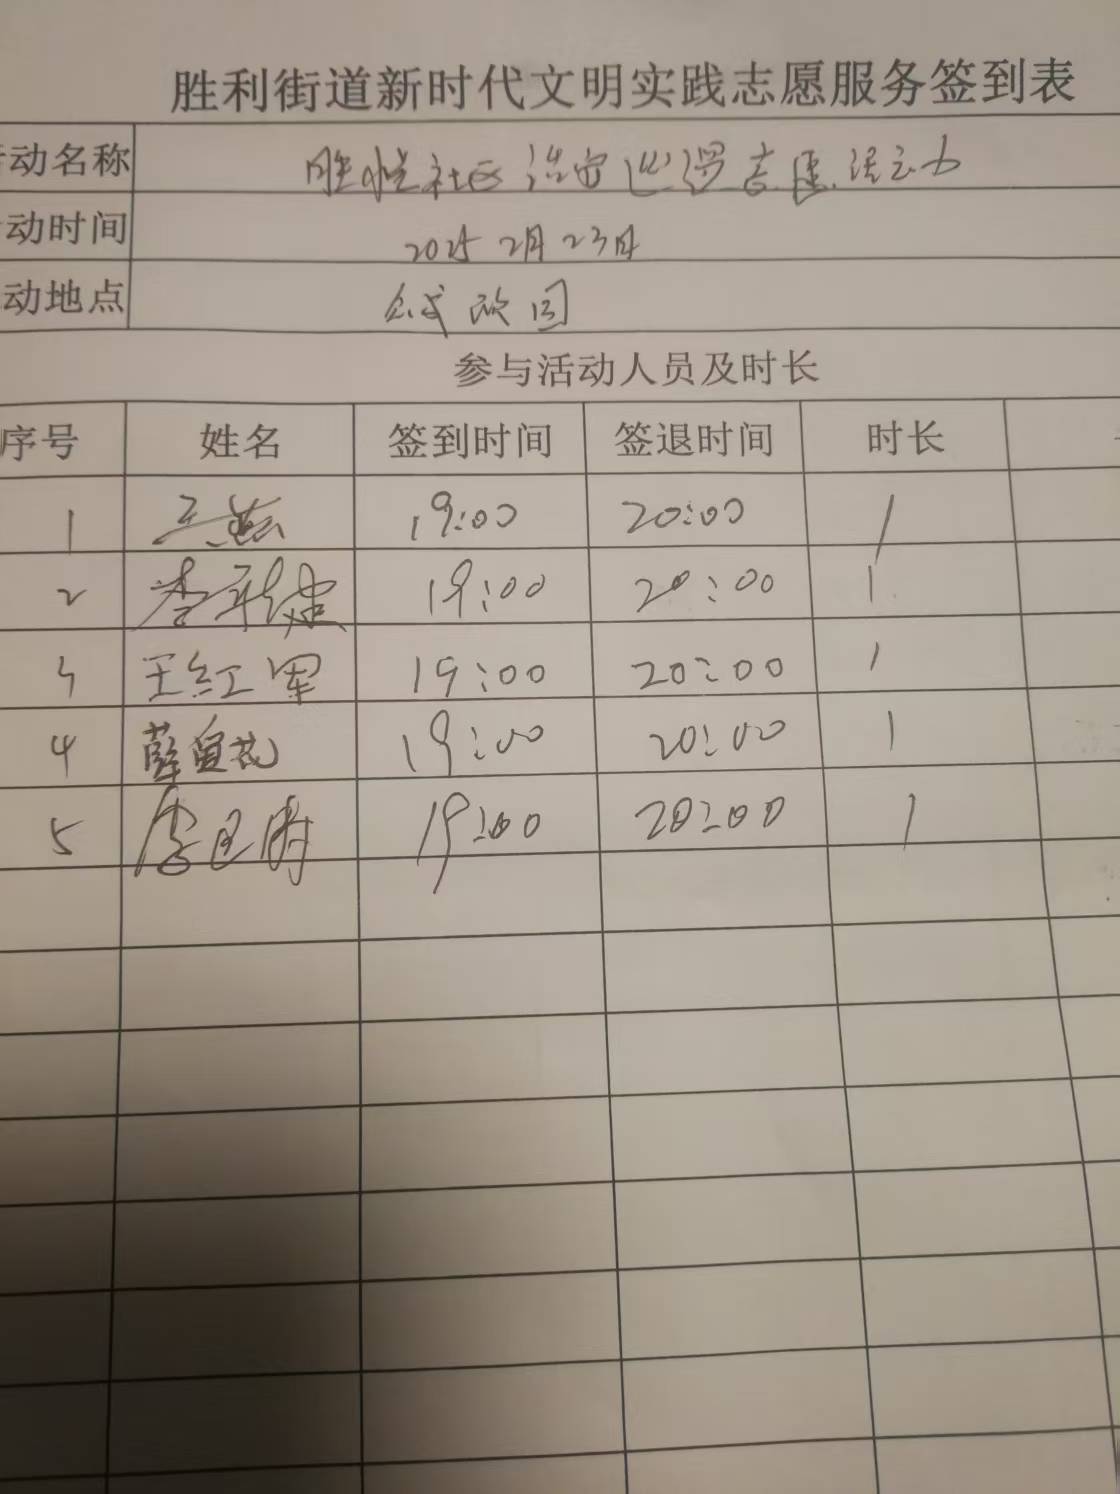 胜利街道新时代文明实践志愿服务签到表
动名称 胜悦社区治安巡逻志愿活动
动时间 2025 2月23日
动地点
参与活动人员及时长
序号 姓名 签到时间 签退时间 时长
1 王燕 19:00 20:00 1
2 19:00 20:00 1
3 王红军 19:00 20:00 1
4 薛 花 19:00 20:00 1
5 李 19:00 20:00 1